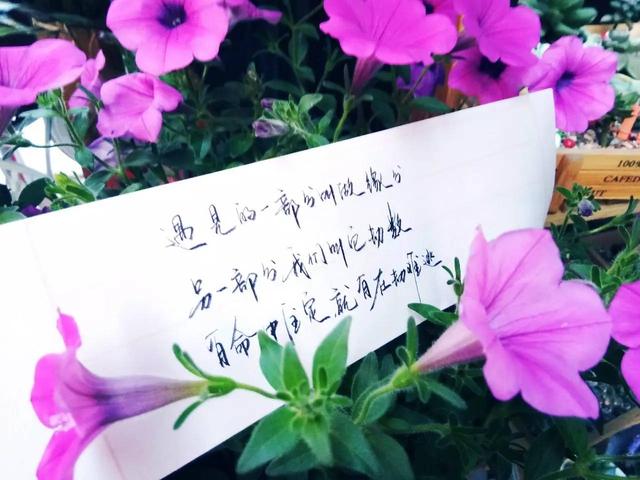 遇见的一部分叫做缘分
另一部分我们叫它劫数
有命中注定就有在劫难逃
100%
CAFED